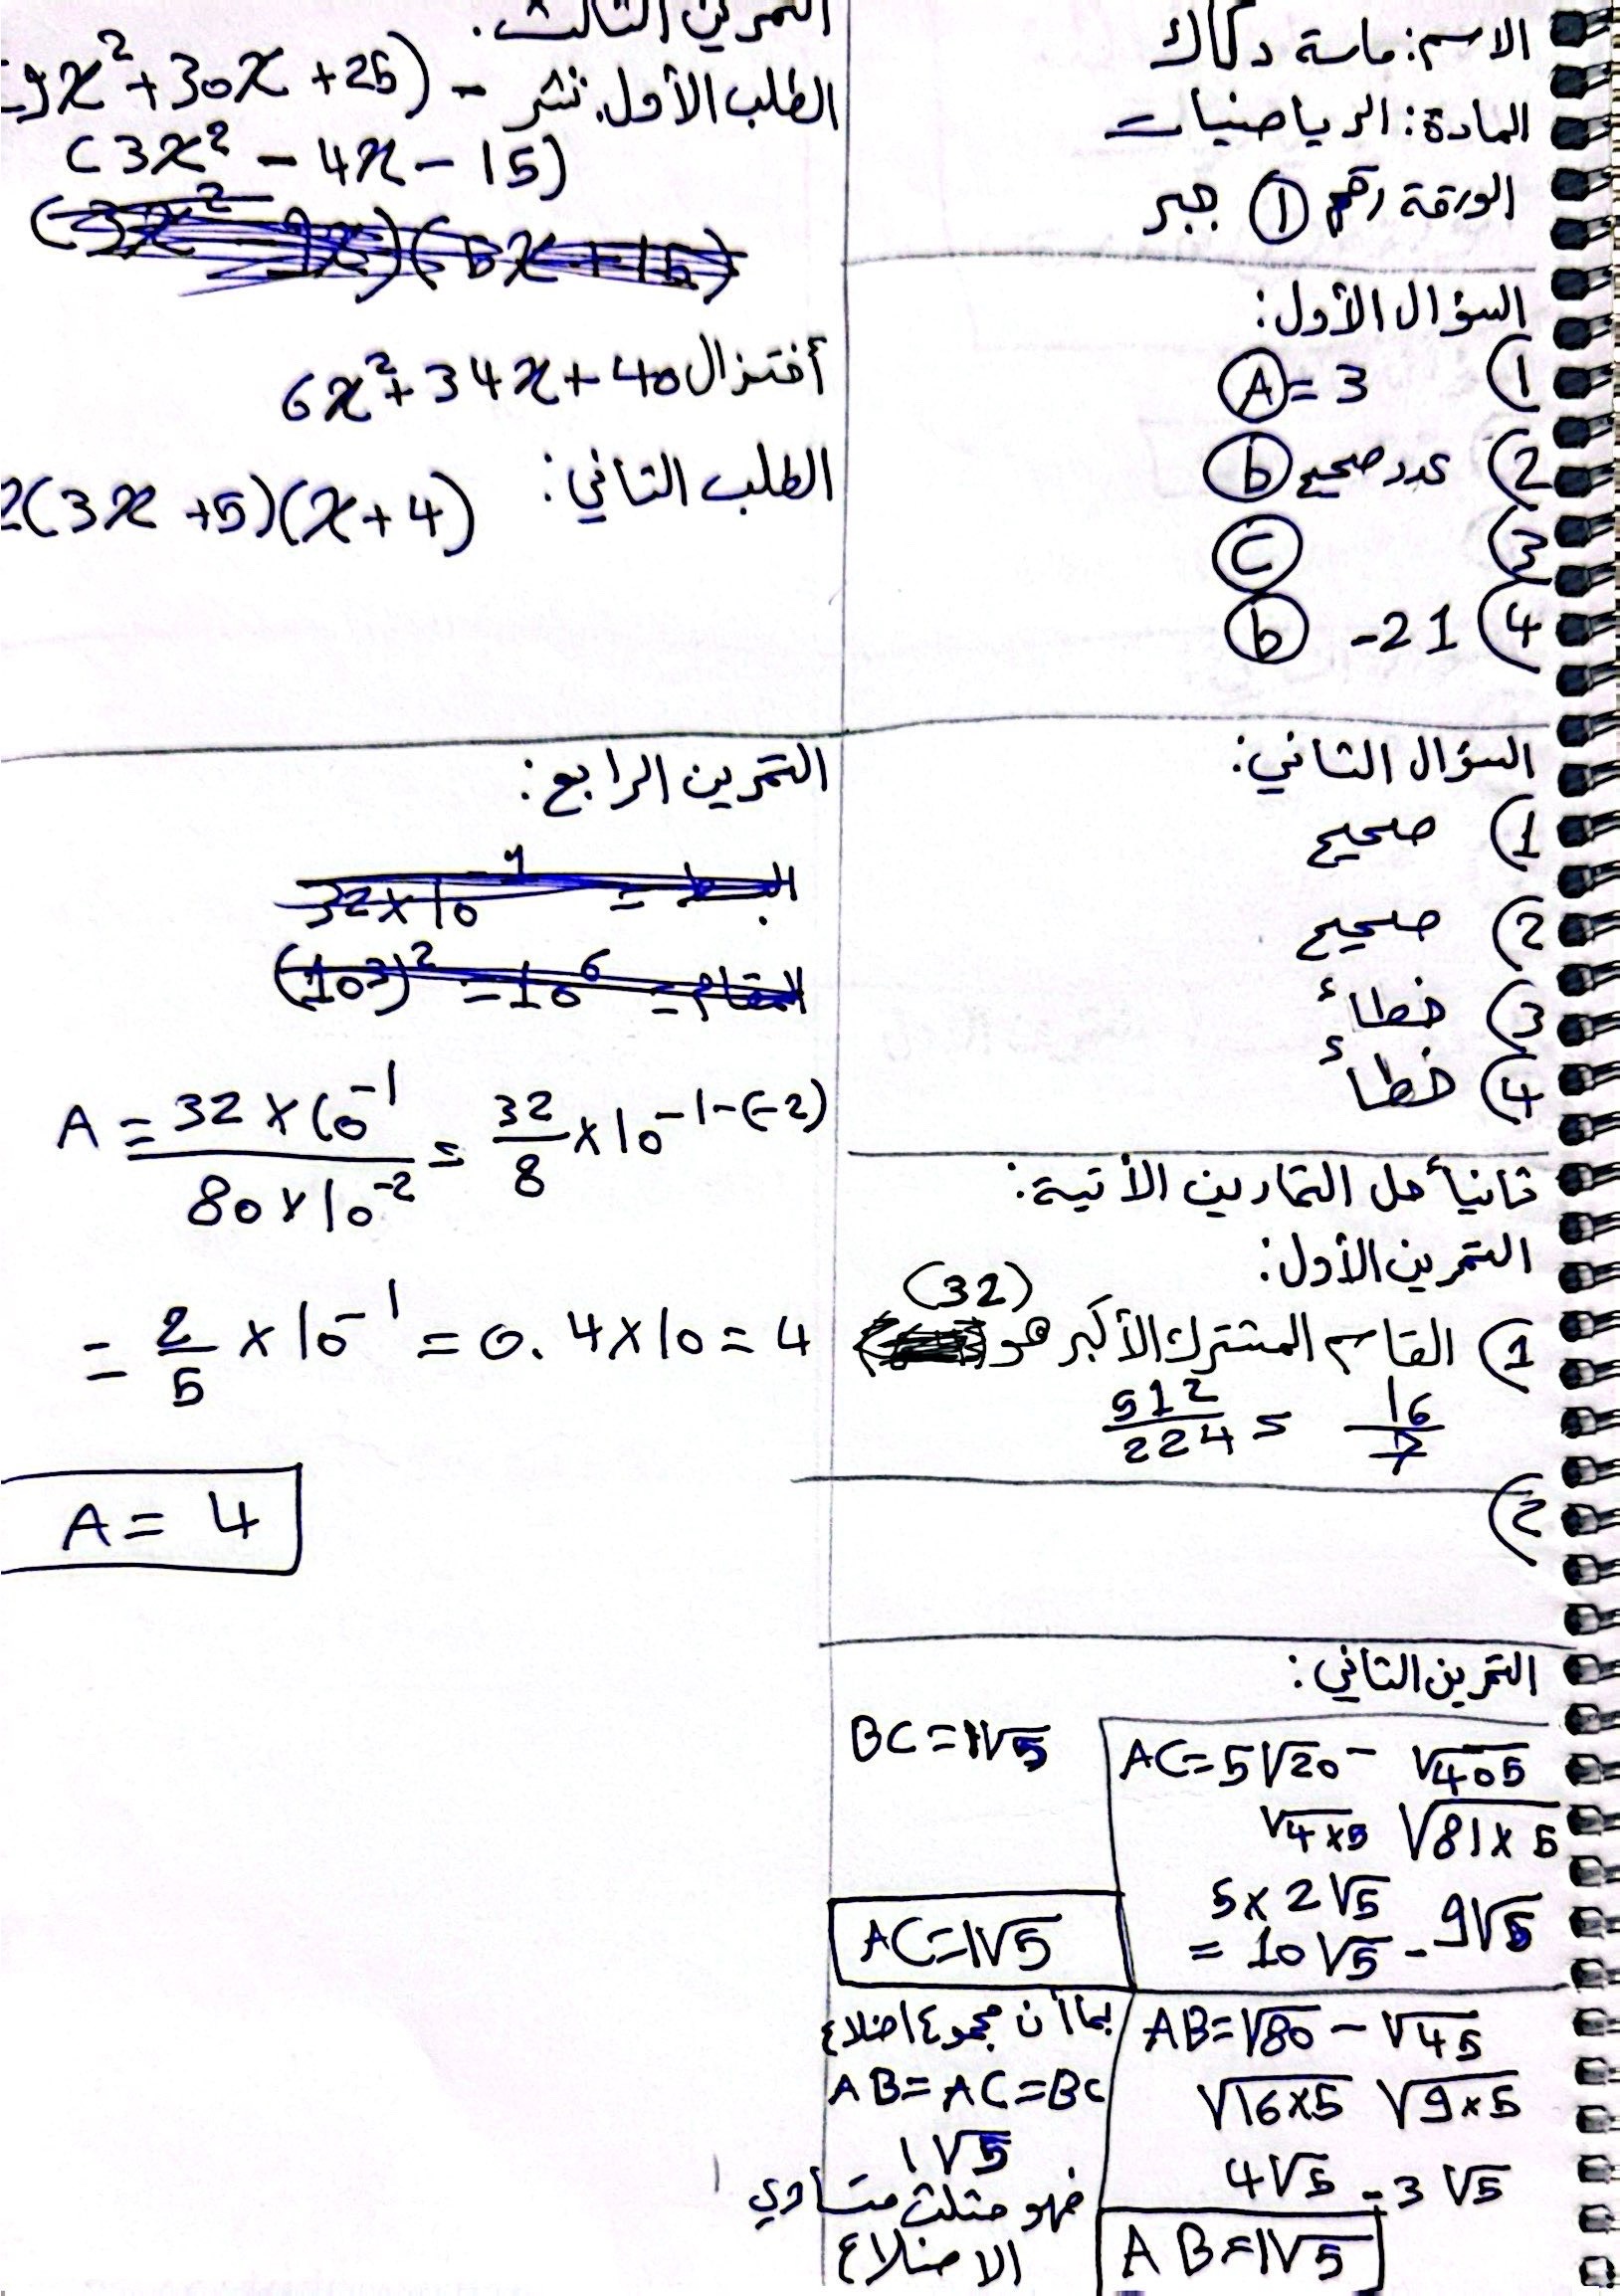 الاسم: ماسة دكاك
المادة: الرياضيات
الورقة رقم ① جبر
السؤال الأول:
1) A = 3
2) عدد صحيح b
3) C
4) -21 b
السؤال الثاني:
1) صحيح
2) صحيح
3) خطأ
4) خطأ
ثانياً حل التمارين الأتية:
التمرين الأول:
1) القاسم المشترك الأكبر هو (32)
512/224 = 16/7
2)
التمرين الثاني:
AC=5√20 - √405
√4×5 √81×5
5×2√5
= 10√5 - 9√5
AC=1√5
AB=√80 - √45
√16×5 √9×5
4√5 - 3√5
AB=1√5
BC=1√5
بما أن مجموع اضلاع
AB=AC=BC
1√5
فهو مثلث متساوي
الاضلاع
التمرين الثالث:
الطلب الأول: نشر (9x²+30x+25) -
(3x² - 4x - 15)
أختزال 6x²+34x+40
الطلب الثاني: 2(3x+5)(x+4)
التمرين الرابع:
32×10
(10³)² = 10⁶ = المقام
A = 32×10⁻¹/80×10⁻² = 32/8 ×10⁻¹⁻⁽⁻²⁾
= 2/5 × 10⁻¹ = 0.4×10 = 4
A = 4